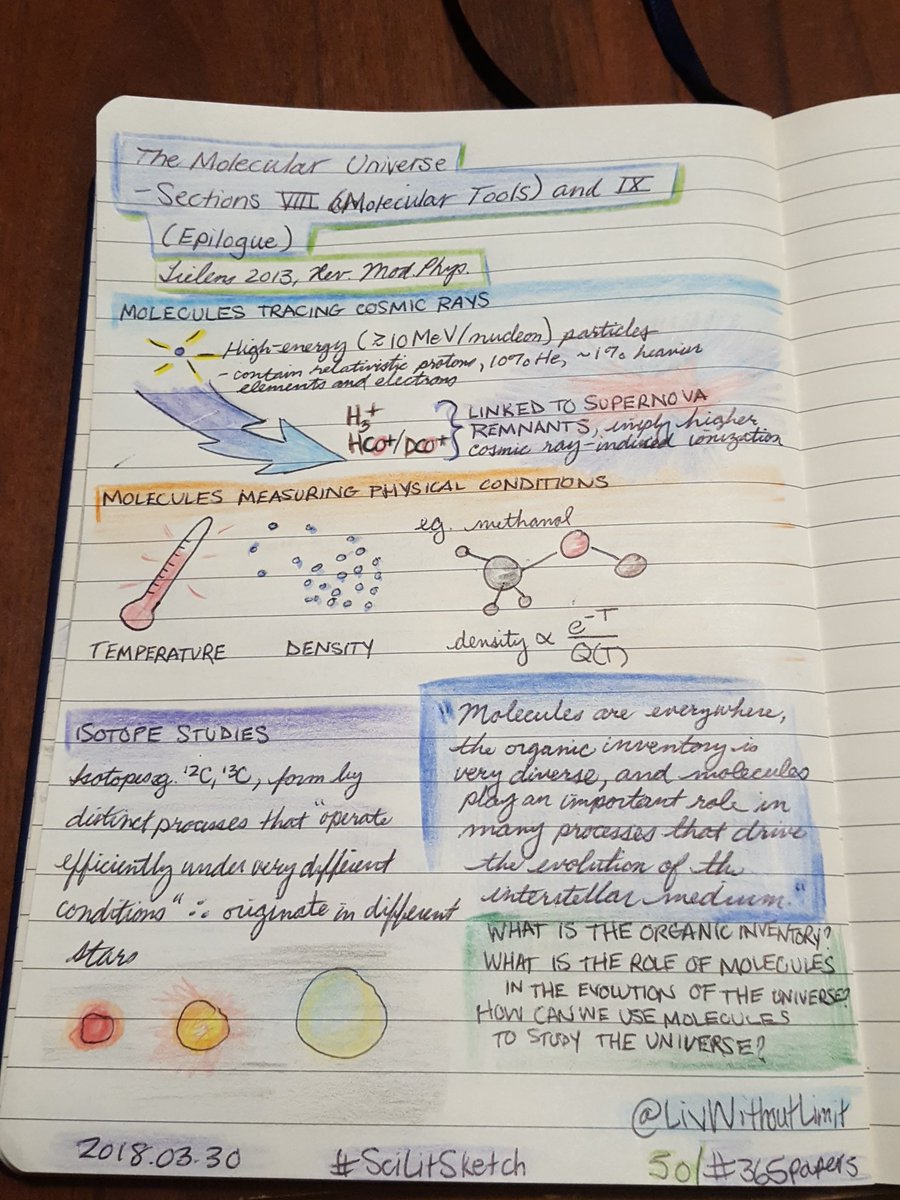 The Molecular Universe
- Sections VIII (Molecular Tools) and IX
(Epilogue)
Tielens 2013, Rev. Mod. Phys.
MOLECULES TRACING COSMIC RAYS
High-energy (≥10 MeV/nucleon) particles
- contain relativistic protons, 10% He, ~1% heavier
elements and electrons
H₃⁺
HCO⁺/DCO⁺
LINKED TO SUPERNOVA
REMNANTS, imply higher
cosmic ray-induced ionization
MOLECULES MEASURING PHYSICAL CONDITIONS
eg. methanol
TEMPERATURE
DENSITY
density ∝ e^-T / Q(T)
ISOTOPE STUDIES
Isotopes eg. ¹²C, ¹³C, form by
distinct processes that "operate
efficiently under very different
conditions" ∴ originate in different
stars
"Molecules are everywhere,
the organic inventory is
very diverse, and molecules
play an important role in
many processes that drive
the evolution of the
interstellar medium."
WHAT IS THE ORGANIC INVENTORY?
WHAT IS THE ROLE OF MOLECULES
IN THE EVOLUTION OF THE UNIVERSE?
HOW CAN WE USE MOLECULES
TO STUDY THE UNIVERSE?
@LivWithoutLimit
2018.03.30
#SciLitSketch
50/#365papers